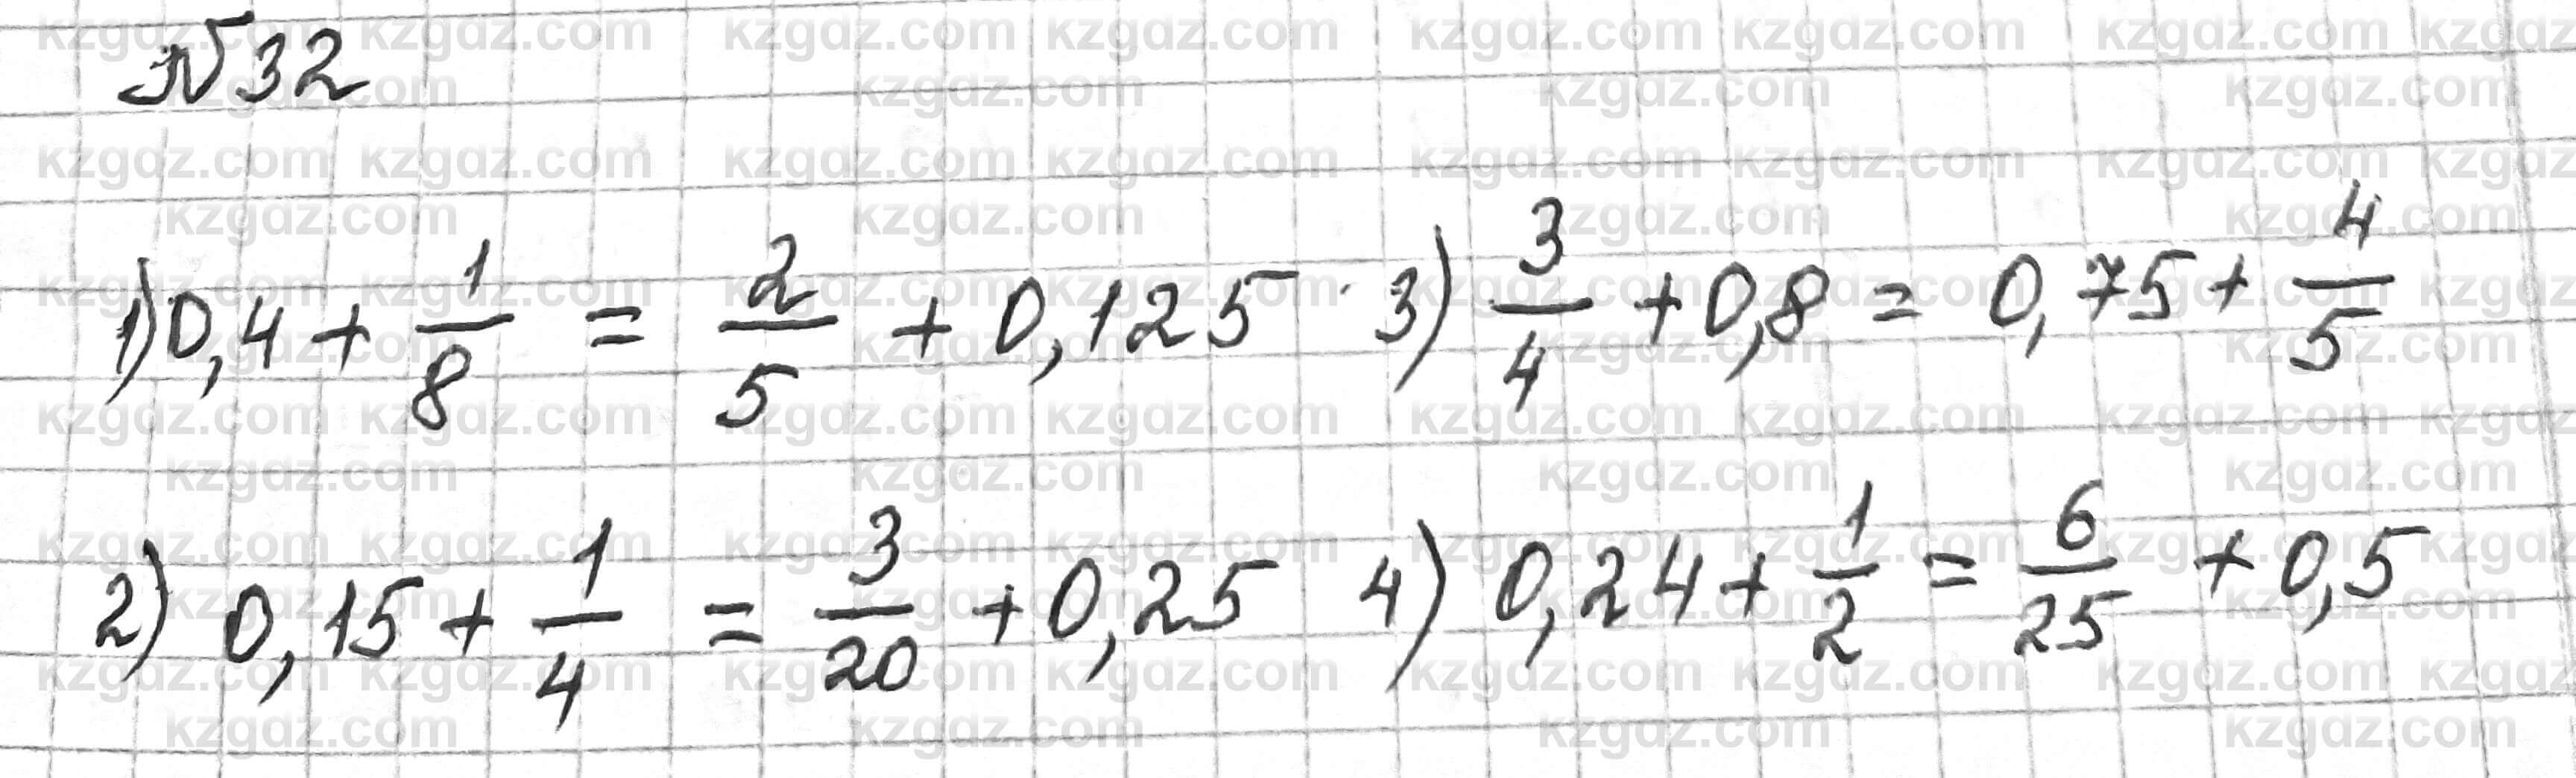 №32
1) 0,4 + 1/8 = 2/5 + 0,125 3) 3/4 + 0,8 = 0,75 + 4/5
2) 0,15 + 1/4 = 3/20 + 0,25 4) 0,24 + 1/2 = 6/25 + 0,5
kzgdz.com